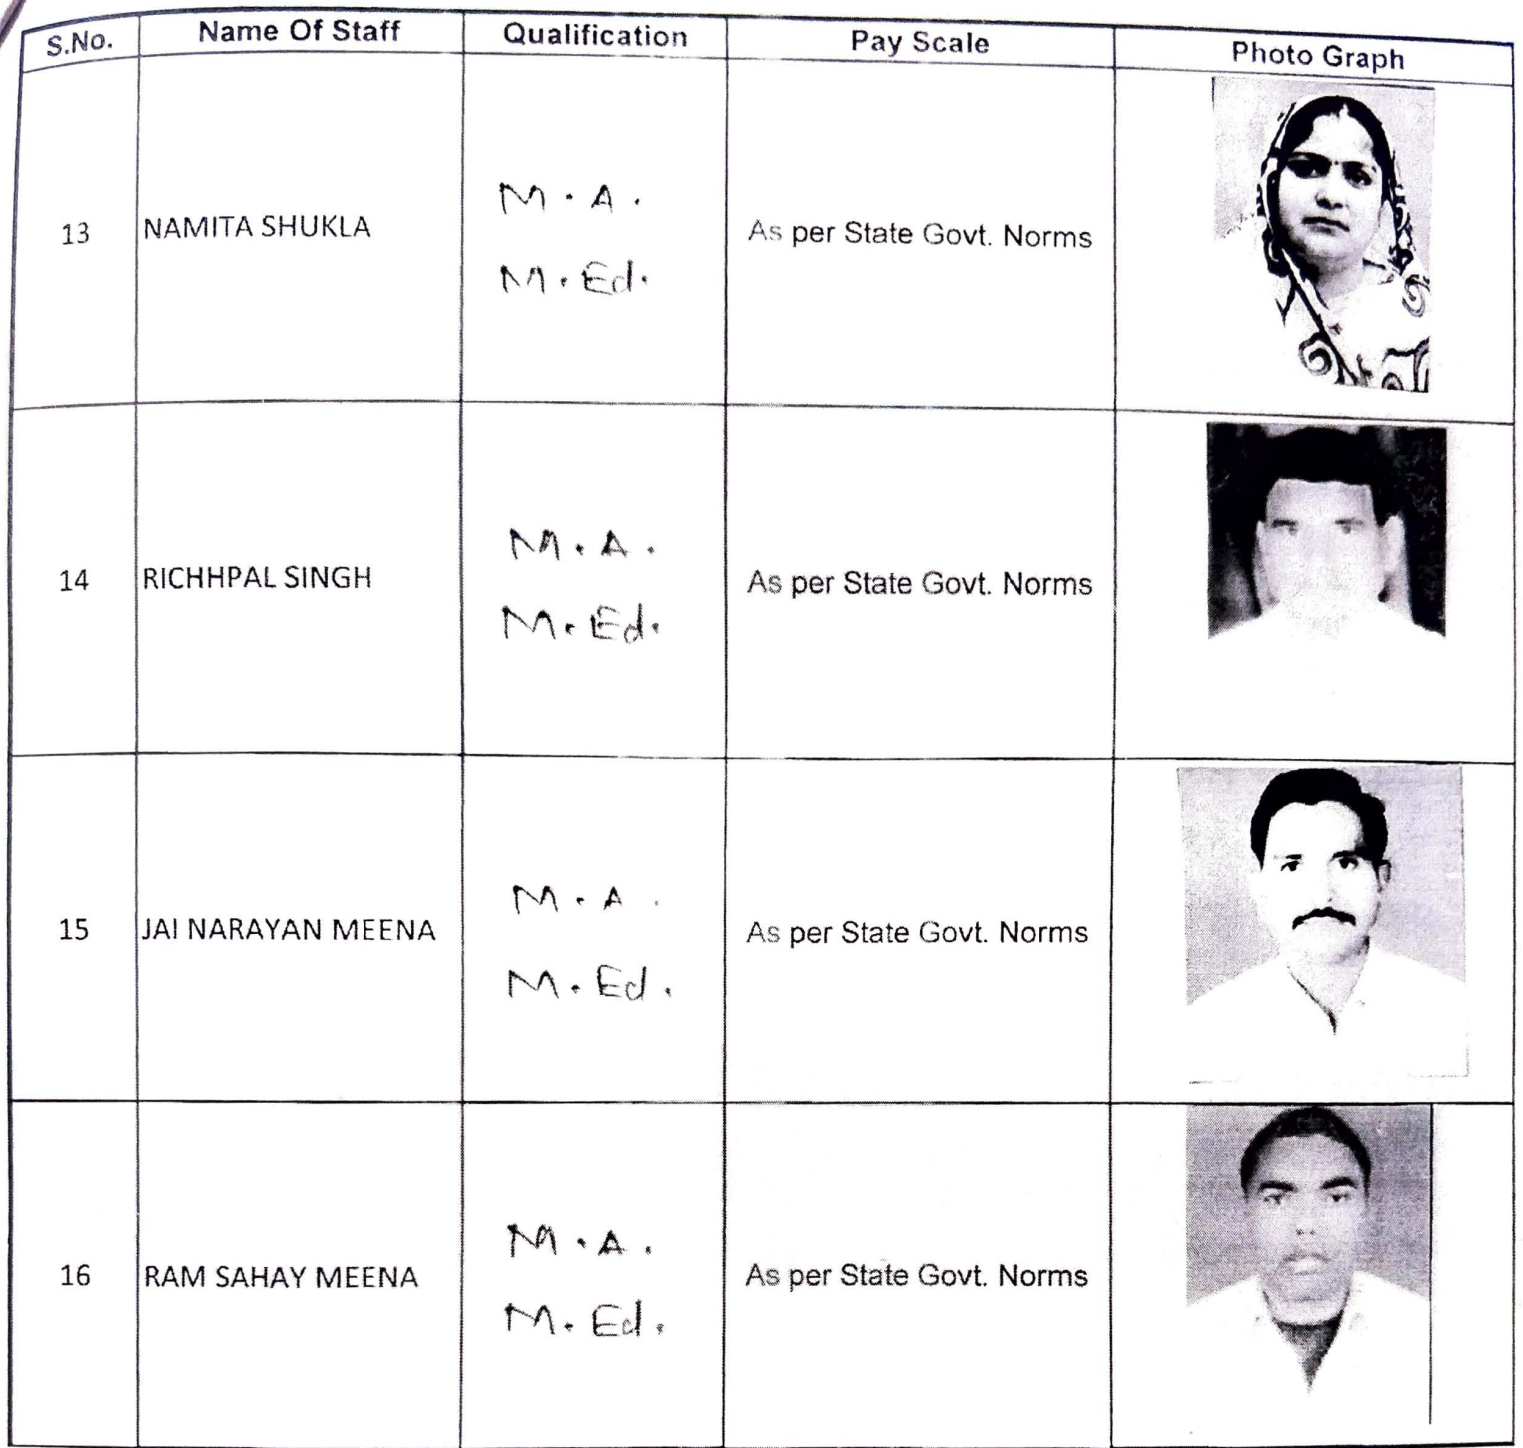 S.No. Name Of Staff Qualification Pay Scale Photo Graph
13 NAMITA SHUKLA M.A. As per State Govt. Norms
M.Ed.
14 RICHHPAL SINGH M.A. As per State Govt. Norms
M.Ed.
15 JAI NARAYAN MEENA M.A. As per State Govt. Norms
M.Ed.
16 RAM SAHAY MEENA M.A. As per State Govt. Norms
M.Ed.